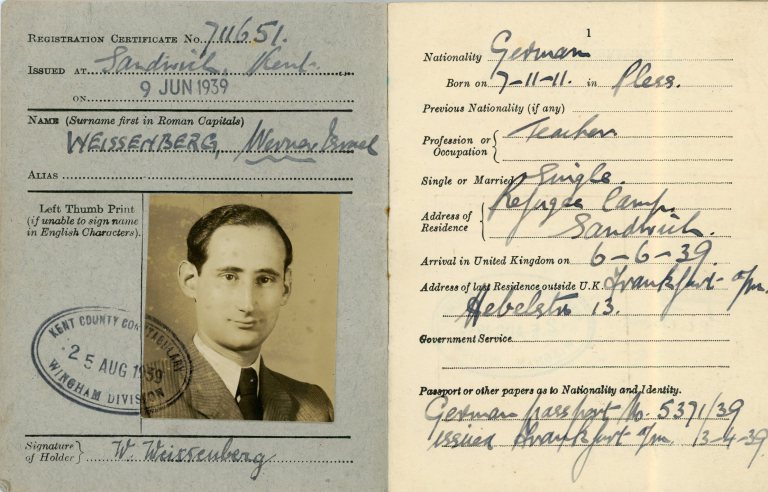 REGISTRATION CERTIFICATE No. 711651.
ISSUED AT Sandwich, Kent.
ON 9 JUN 1939
NAME (Surname first in Roman Capitals)
WEISSENBERG, Werner Israel
ALIAS
Left Thumb Print
(if unable to sign name
in English Characters).
KENT COUNTY CONSTABULARY
25 AUG 1939
WINGHAM DIVISION
Signature
of Holder } W. Weissenberg
1
Nationality German
Born on 7-11-11. in Pless.
Previous Nationality (if any)
Profession or
Occupation { Teacher
Single or Married Single.
Address of
Residence { Refugee Camp.
Sandwich.
Arrival in United Kingdom on 6-6-39.
Address of last Residence outside U.K. Frankfurt o/m.
Hebelstr. 13.
Government Service
Passport or other papers as to Nationality and Identity.
German passport No. 5371/39
issued Frankfurt o/m. 13-4-39.